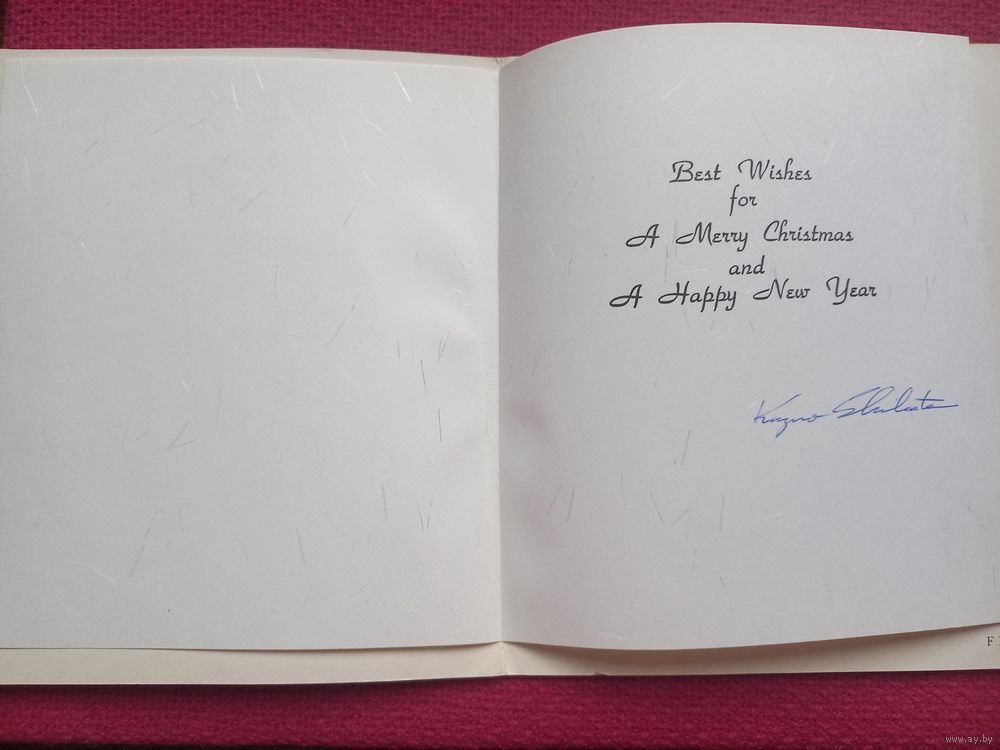 Best Wishes
for
A Merry Christmas
and
A Happy New Year
Kazuo Shibata
F
www.ay.by